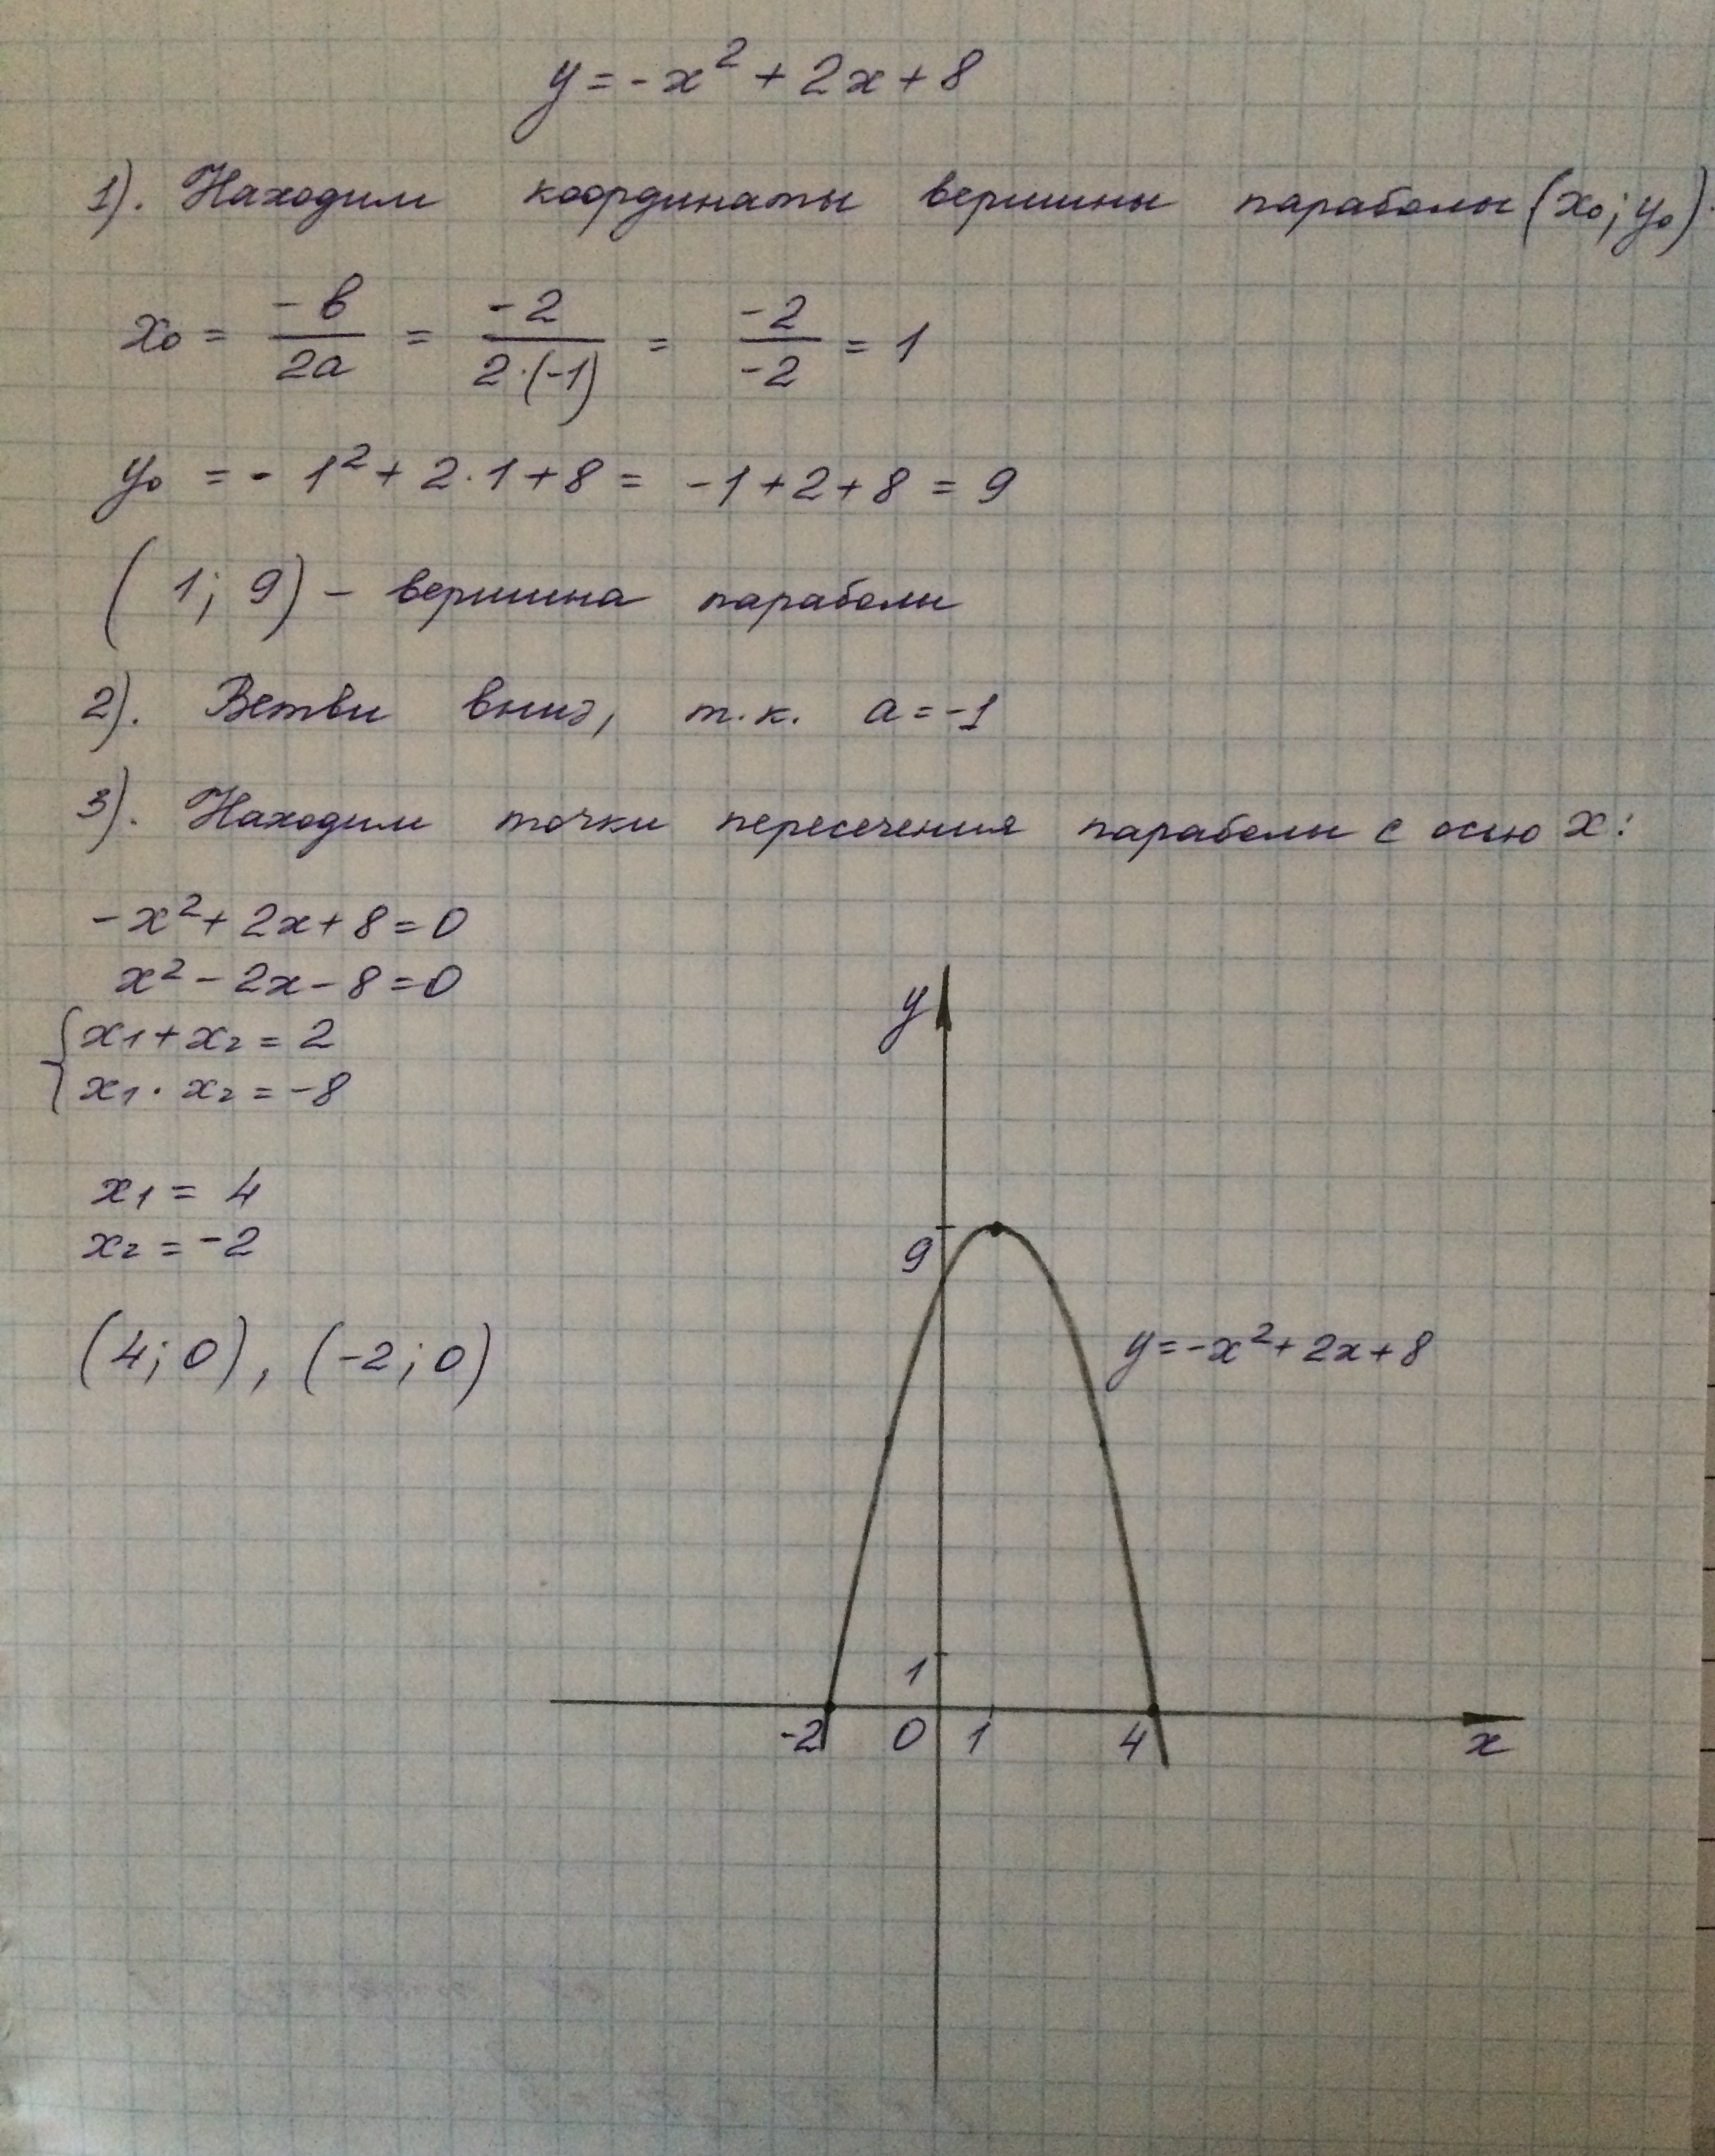 y = -x² + 2x + 8
1). Находим координаты вершины параболы (x₀; y₀).
x₀ = -b/2a = -2/2·(-1) = -2/-2 = 1
y₀ = - 1² + 2·1 + 8 = -1+2+8 = 9
(1; 9) – вершина параболы
2). Ветви вниз, т.к. a = -1
3). Находим точки пересечения параболы с осью x:
-x² + 2x + 8 = 0
x² - 2x - 8 = 0
{x₁ + x₂ = 2
x₁ · x₂ = -8
x₁ = 4
x₂ = -2
(4; 0), (-2; 0)
y
9
y = -x² + 2x + 8
1
-2 0 1 4 x